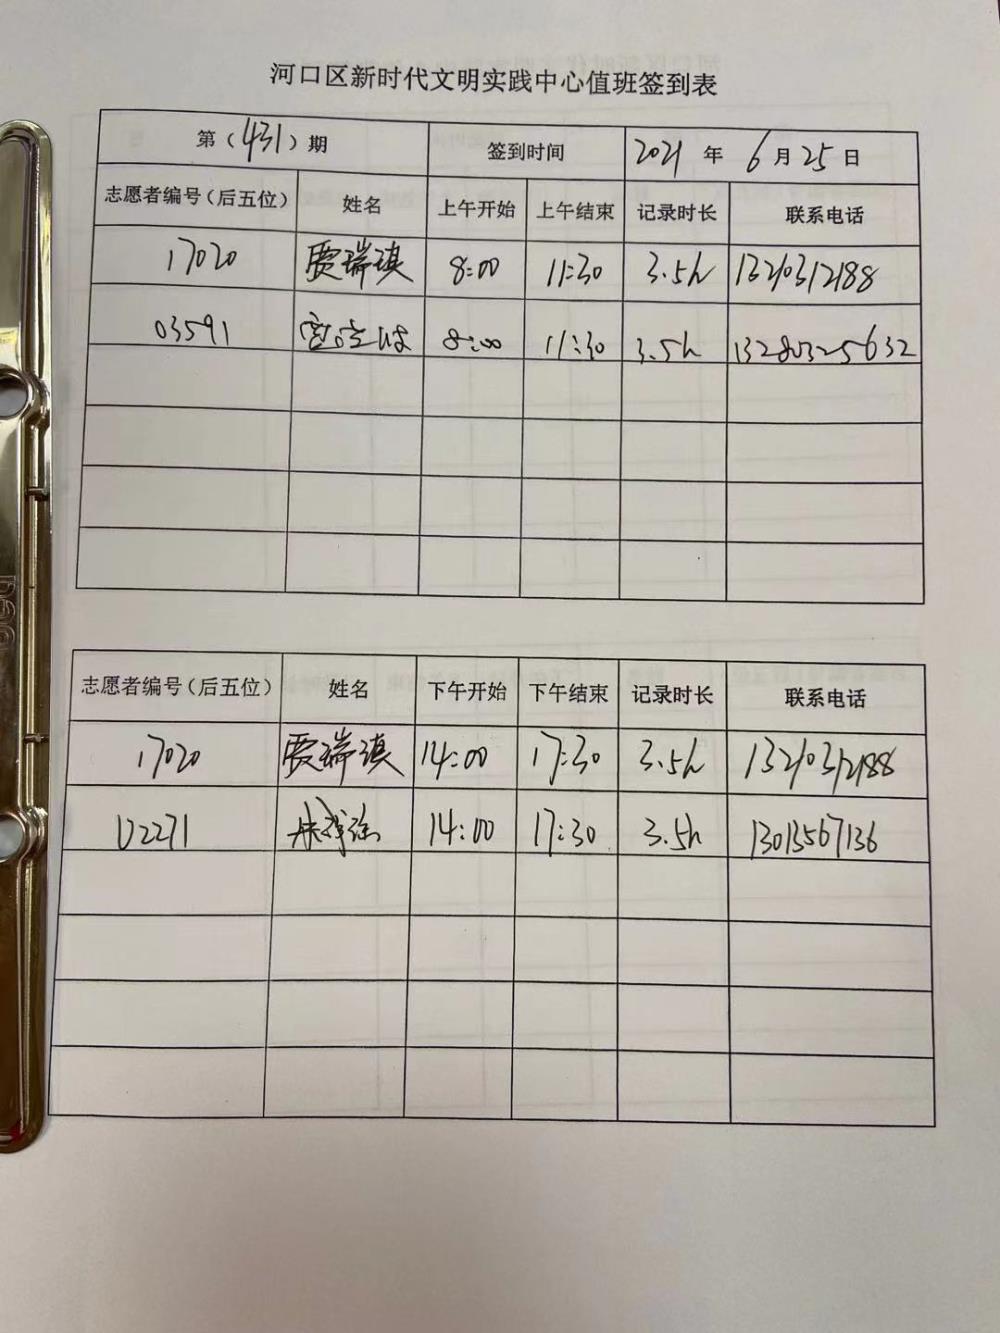 河口区新时代文明实践中心值班签到表
第（431）期 签到时间 2021 年 6 月 25 日
志愿者编号（后五位） 姓名 上午开始 上午结束 记录时长 联系电话
17020 贾瑞琪 8:00 11:30 3.5h 13210312188
03591 8:00 11:30 3.5h 13280325632
志愿者编号（后五位） 姓名 下午开始 下午结束 记录时长 联系电话
17020 贾瑞琪 14:00 17:30 3.5h 13210312188
02271 14:00 17:30 3.5h 13013567136